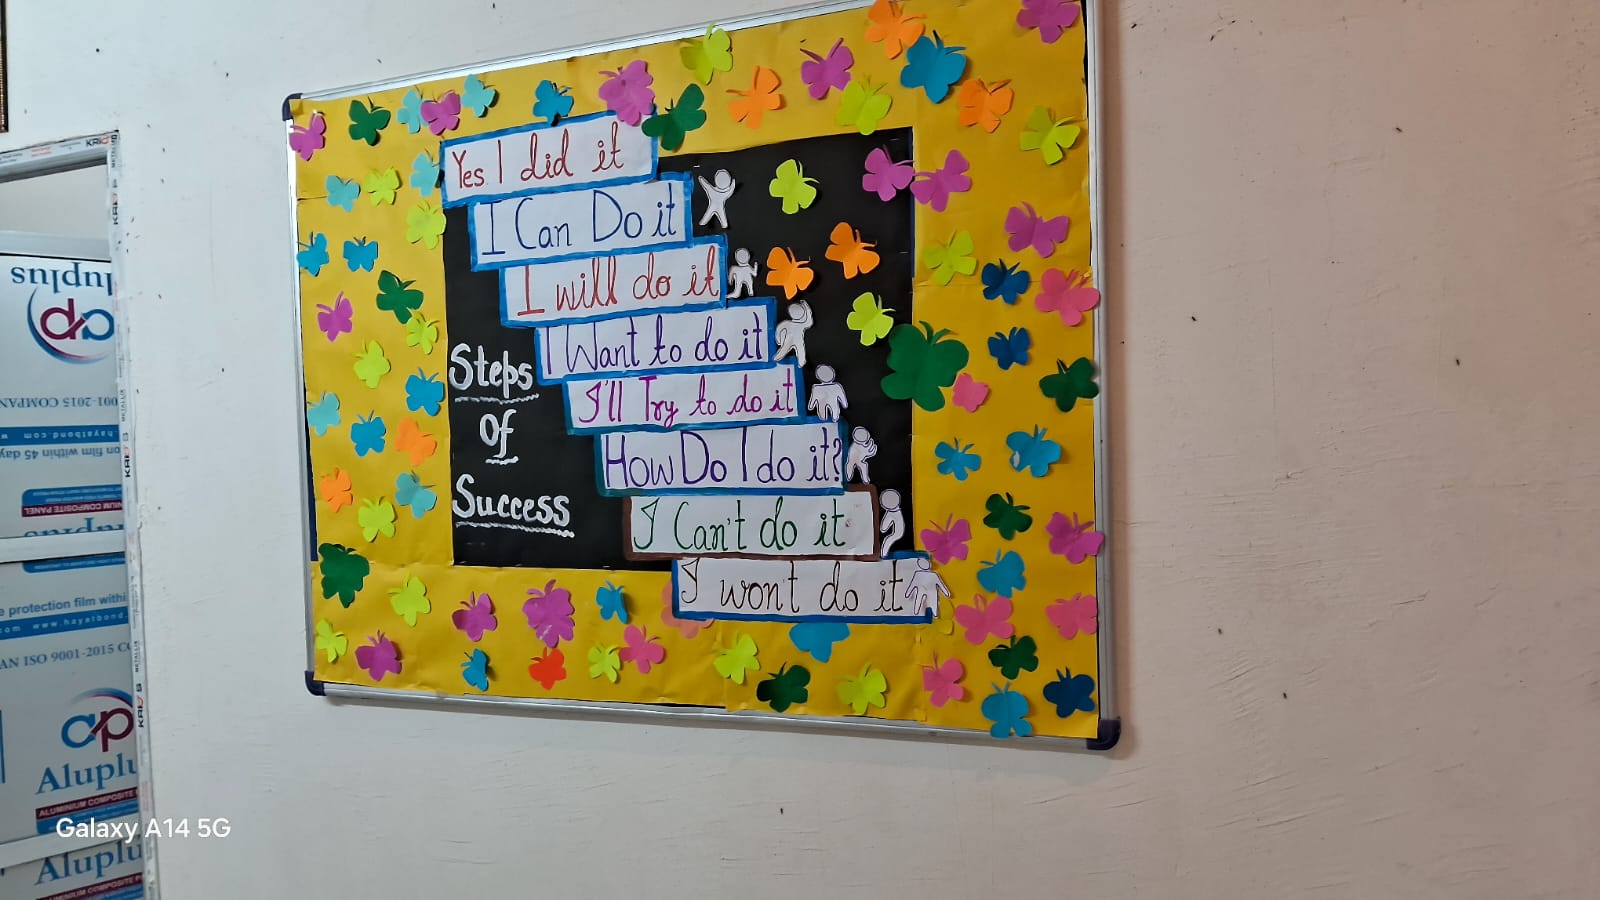 Yes I did it
I Can Do it
I will do it
I Want to do it
I'll Try to do it
How Do I do it?
I Can't do it
I won't do it
Steps
of
Success
uplus
ap
001-2015 COMPAN
.hayatbond.com
on film within 45 day
NIUM COMPOSITE PANEL
uplus
e protection film withi
www.hayatbond.
AN ISO 9001-2015 CO
ap
Aluplu
ALUMINIUM COMPOSITE
Aluplu
Galaxy A14 5G